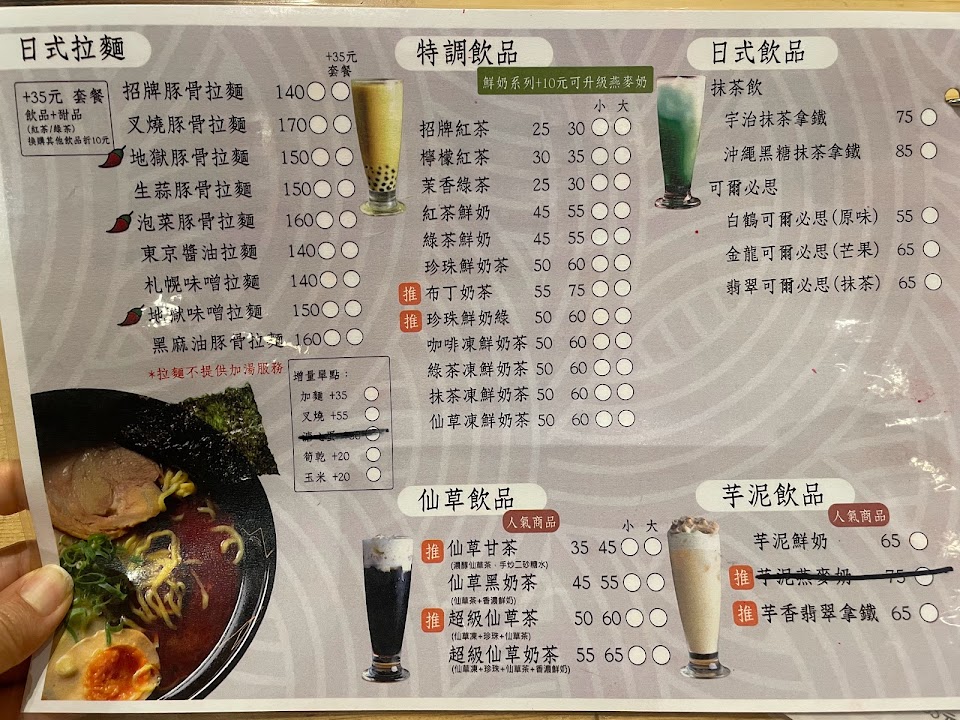 日式拉麵
+35元
套餐
+35元 套餐
飲品+甜品
(紅茶/綠茶)
換購其他飲品折10元
招牌豚骨拉麵 140
叉燒豚骨拉麵 170
地獄豚骨拉麵 150
生蒜豚骨拉麵 150
泡菜豚骨拉麵 160
東京醬油拉麵 140
札幌味噌拉麵 140
地獄味噌拉麵 150
黑麻油豚骨拉麵 160
*拉麵不提供加湯服務
增量單點：
加麵 +35
叉燒 +55
筍乾 +20
玉米 +20
特調飲品
鮮奶系列+10元可升級燕麥奶
小 大
招牌紅茶 25 30
檸檬紅茶 30 35
茉香綠茶 25 30
紅茶鮮奶 45 55
綠茶鮮奶 45 55
珍珠鮮奶茶 50 60
推 布丁奶茶 55 75
推 珍珠鮮奶綠 50 60
咖啡凍鮮奶茶 50 60
綠茶凍鮮奶茶 50 60
抹茶凍鮮奶茶 50 60
仙草凍鮮奶茶 50 60
仙草飲品
人氣商品
小 大
推 仙草甘茶 35 45
(濃醇仙草茶、手炒二砂糖水)
仙草黑奶茶 45 55
(仙草茶+香濃鮮奶)
推 超級仙草茶 50 60
(仙草凍+珍珠+仙草茶)
超級仙草奶茶 55 65
(仙草凍+珍珠+仙草茶+香濃鮮奶)
日式飲品
抹茶飲
宇治抹茶拿鐵 75
沖繩黑糖抹茶拿鐵 85
可爾必思
白鶴可爾必思(原味) 55
金龍可爾必思(芒果) 65
翡翠可爾必思(抹茶) 65
芋泥飲品
人氣商品
芋泥鮮奶 65
推 芋泥燕麥奶 75
推 芋香翡翠拿鐵 65